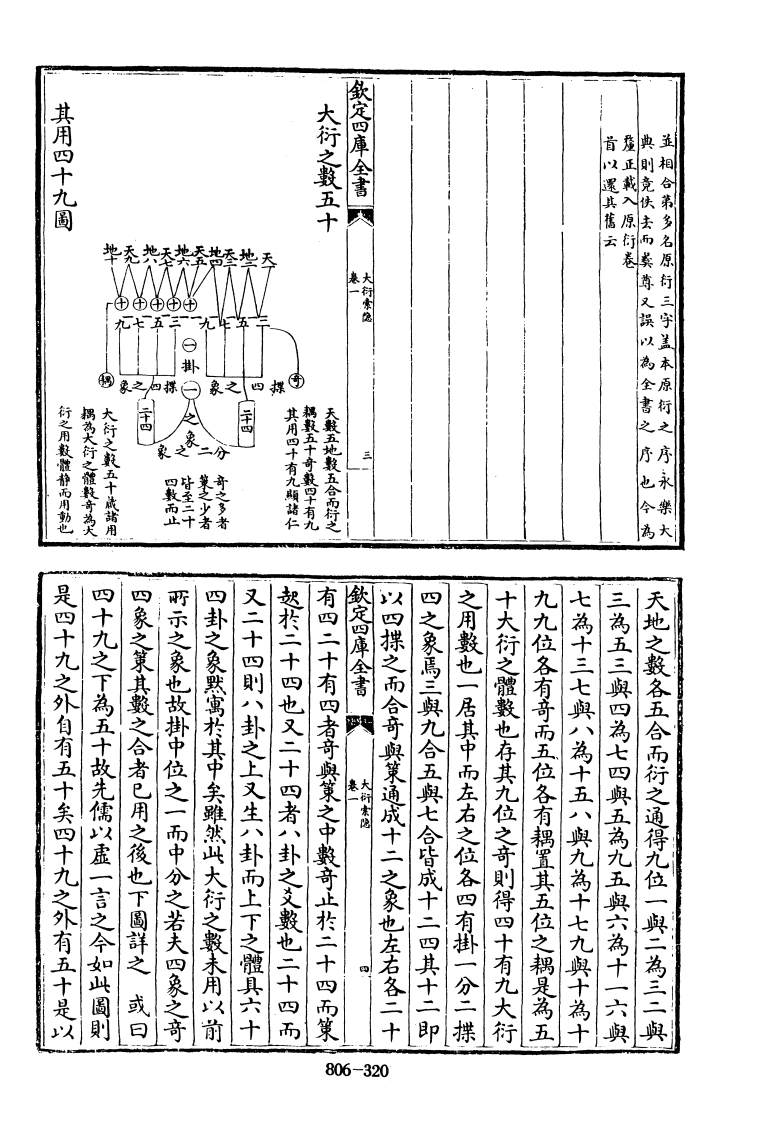 並相合第多名原衍三字盖本原衍之序永樂大
典則竟佚去而龔尊又誤以為全書之序也今為
釐正載入原衍卷
首以還其舊云
欽定四庫全書
大衍索隱
卷一
三
大衍之數五十
其用四十九圖
天
地二
天三
地四
天五
地六
天七
地八
天九
地十
十
十
十
十
十
三
五
七
九
三
五
七
九
一
掛
一
奇
耦
揲四之象
揲四之象
二十四
二十四
之象
分二之象
天數五地數五合而衍之
耦數五十奇數四十有九
其用四十有九顯諸仁
奇之多者
策之少者
皆至二十
四數而止
大衍之數五十歲諸用
耦為大衍之體數奇為大
衍之用數體静而用動也
天地之數各五合而衍之通得九位一與二為三二與
三為五三與四為七四與五為九五與六為十一六與
七為十三七與八為十五八與九為十七九與十為十
九九位各有奇而五位各有耦置其五位之耦是為五
十大衍之體數也存其九位之奇則得四十有九大衍
之用數也一居其中而左右之位各四有掛一分二揲
四之象焉三與九合五與七合皆成十二四其十二即
以四揲之而合奇與策通成十二之象也左右各二十
欽定四庫全書
大衍索隱
卷一
四
有四二十有四者奇與策之中數奇止於二十四而策
起於二十四也又二十四者八卦之爻數也二十四而
又二十四則八卦之上又生八卦而上下之體具六十
四卦之象黙寓於其中矣雖然此大衍之數未用以前
所示之象也故掛中位之一而中分之若夫四象之奇
四象之策其數之合者已用之後也下圖詳之 或曰
四十九之下為五十故先儒以虛一言之今如此圖則
是四十九之外自有五十矣四十九之外有五十是以
806-320